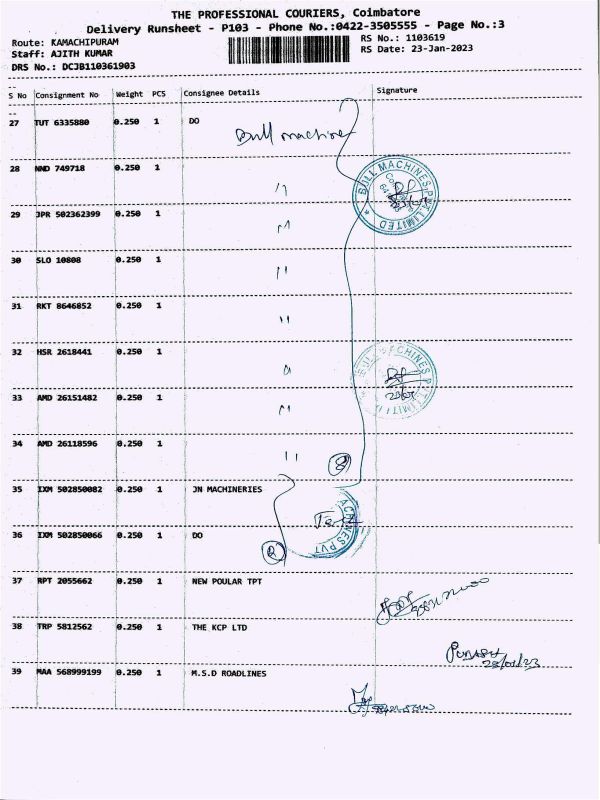 THE PROFESSIONAL COURIERS, Coimbatore
Delivery Runsheet - P103 - Phone No.:0422-3505555 - Page No.:3
Route: KAMACHIPURAM
RS No.: 1103619
Staff: AJITH KUMAR
RS Date: 23-Jan-2023
DRS No.: DCJB110361903
S No Consignment No Weight PCS Consignee Details Signature
27 TUT 6335880 0.250 1 DO
Bull machines
28 NND 749718 0.250 1
BULL MACHINES PVT LIMITED
29 JPR 502362399 0.250 1
30 SLO 10808 0.250 1
31 RKT 8646852 0.250 1
32 HSR 2618441 0.250 1
BULL MACHINES PVT LIMITED
33 AMD 26151482 0.250 1
34 AMD 26118596 0.250 1
8
35 IXM 502850082 0.250 1 JN MACHINERIES
36 IXM 502850066 0.250 1 DO
2
37 RPT 2055662 0.250 1 NEW POULAR TPT
38 TRP 5812562 0.250 1 THE KCP LTD
39 MAA 568999199 0.250 1 M.S.D ROADLINES